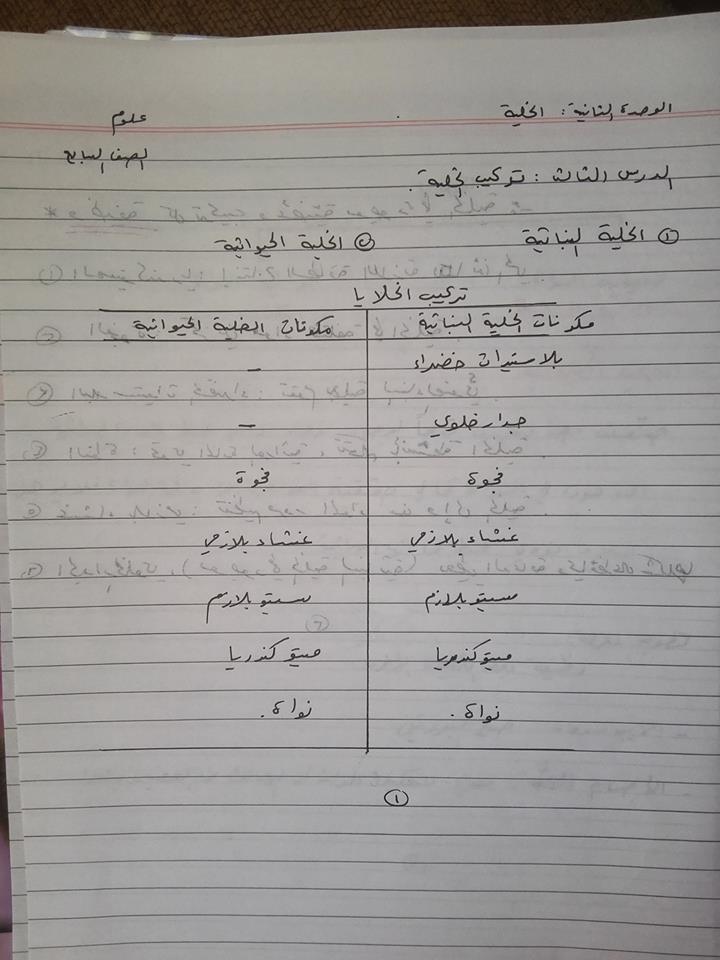 الوحدة الثانية: الخلية
علوم
الصف السابع
الدرس الثالث: تركيب الخلية.
① الخلية النباتية ② الخلية الحيوانية
تركيب الخلايا
مكونات الخلية النباتية مكونات الخلية الحيوانية
بلاستيدات خضراء -
جدار خلوي -
فجوة فجوة
غشاء بلازمي غشاء بلازمي
سيتوبلازم سيتوبلازم
ميتوكندريا ميتوكندريا
نواة. نواة.
①